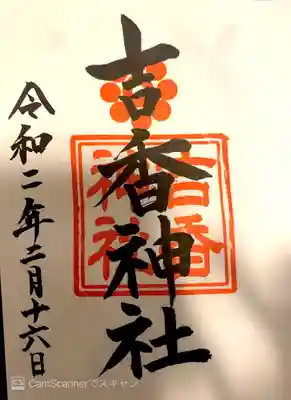 吉香神社
吉香
神社
令和二年二月十六日
CS CamScannerでスキャン